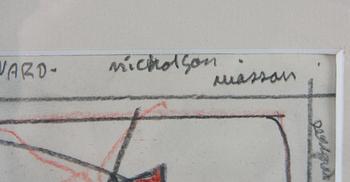 VARD- nicholson
masson